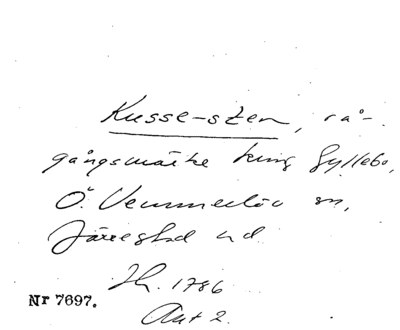 Kusse-sten, rå-
gångsmärke kring Gyllebo,
Ö. Vemmerlöv sn,
Järrestad hd.
Jh. 1786
Akt 2.
Nr 7697.